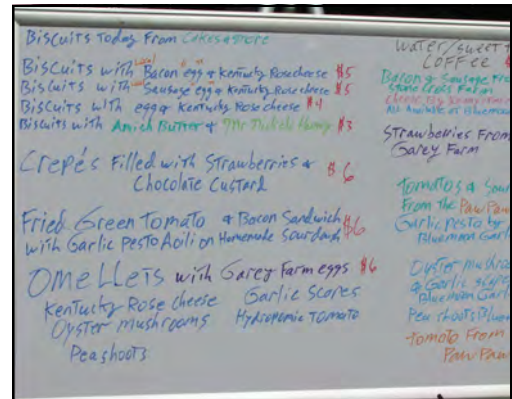 Biscuits Today From Cakes & more
Biscuits with Local Bacon egg & Kentucky Rose cheese $5
Biscuits with Local Sausage egg & Kentucky Rose cheese $5
Biscuits with egg & Kentucky Rose cheese $4
Biscuits with Amish Butter & Honey $3
Crepés Filled with Strawberries &
Chocolate Custard $6
Fried Green Tomato & Bacon Sandwich
with Garlic Pesto Aoili on Homemade Sourdough $6
OMElleTs with Garey Farm eggs $6
Kentucky Rose cheese Garlic Scores
Oyster mushrooms Hydroponic Tomato
Peashoots
Water/Sweet T
COFFEE $
Bacon & Sausage Fro
Stone Cross Farm
Cheese By Kenny
All Available at Bluemoon
Strawberries From
Garey Farm
Tomatos & Sour
From the PawPaw
Garlic Pesto by
Bluemoon Garl
Oyster mushroo
& Garlic
Bluemoon Garl
Pea shoots Bluem
Tomato From
Paw Paw